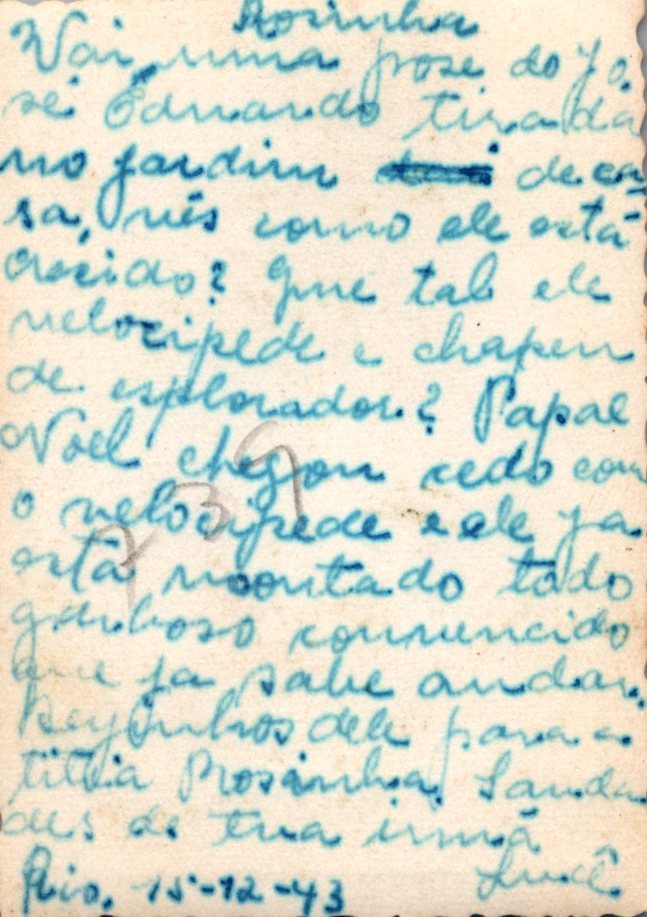 Rosinha
Vai uma pose do Jo
sé Eduardo tirada
no jardim de ca
sa, vês como ele está
crescido? Que tal ele
velocipede e chapeu
de explorador? Papae
Noel chegou cedo com
o velocipede e ele ja
está montado todo
garboso convencido
que ja sabe andar.
Beijinhos dele para a
titia Rosinha. Sauda
des de tua irmã
Rio, 15-12-43
739